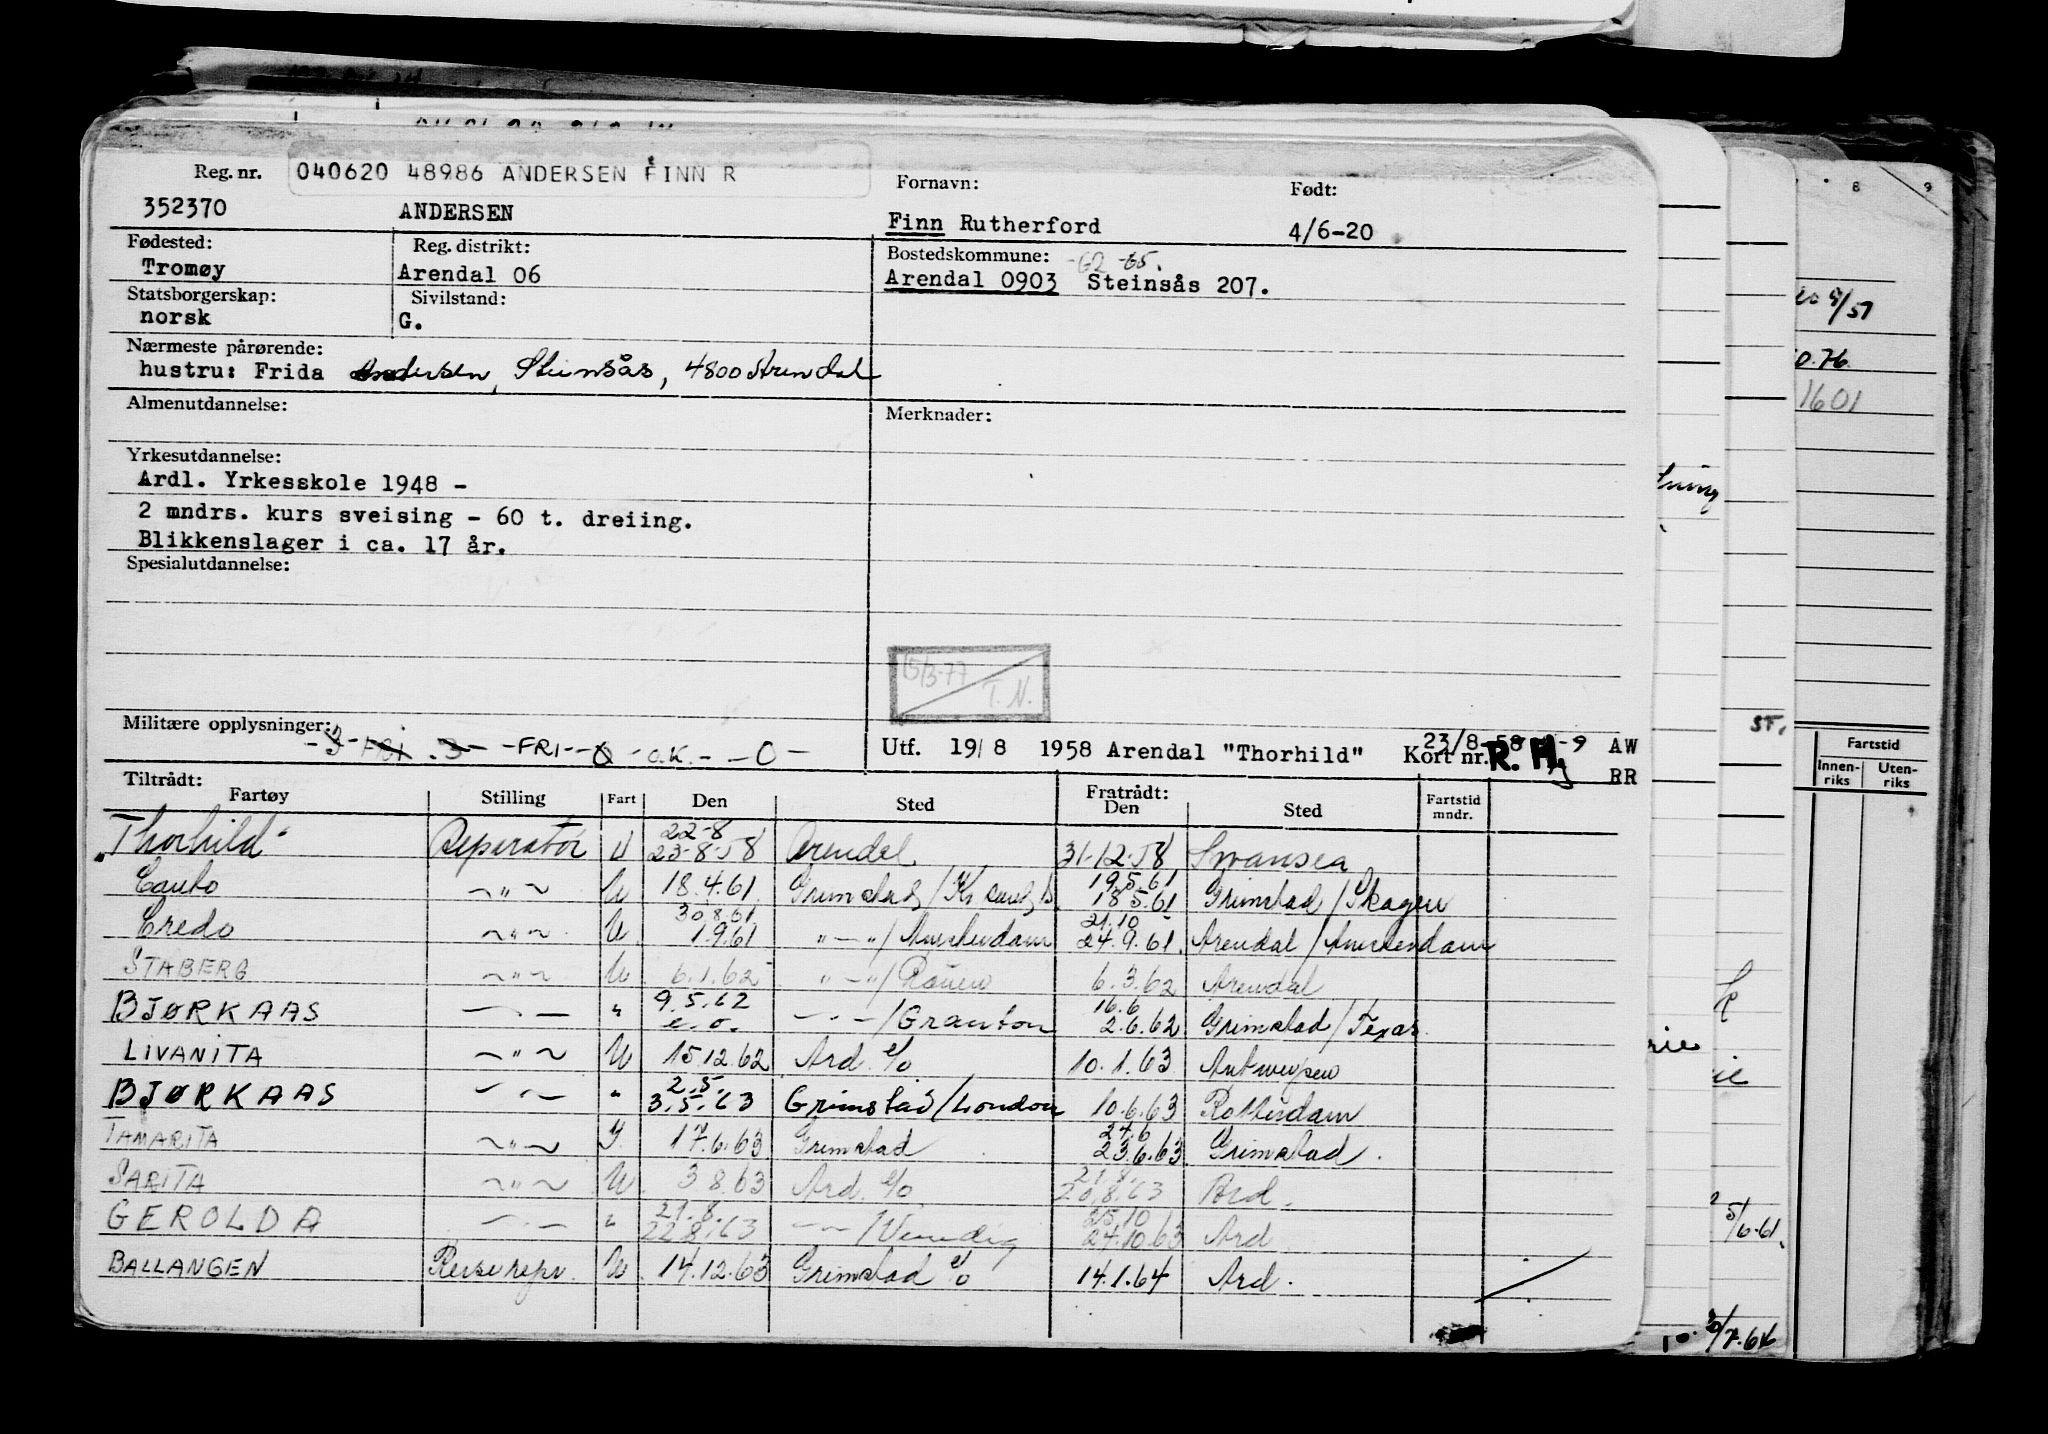 Reg. nr. 040620 48986 ANDERSEN FINN R Fornavn: Født:
352370 ANDERSEN Finn Rutherford 4/6-20
Fødested: Reg. distrikt: Bostedskommune: -62 -65.
Tromøy Arendal 06 Arendal 0903 Steinsås 207.
Statsborgerskap: Sivilstand:
norsk G.
Nærmeste pårørende:
hustru: Frida Andersen, Steinsås, 4800 Arendal
Almenutdannelse: Merknader:
Yrkesutdannelse:
Ardl. Yrkesskole 1948 -
2 mndrs. kurs sveising - 60 t. dreiing.
Blikkenslager i ca. 17 år.
Spesialutdannelse:
15/3-77
T. N.
Militære opplysninger: -3- FRI -3- -FRI- -O- O.K. - -O-
Utf. 19/8 1958 Arendal "Thorhild" 23/8-58 Kort nr. R. Hj -9 AW
RR
Tiltrådt: Fratrådt:
Fartøy Stilling Fart Den Sted Den Sted Fartstid mndr.
22-8
"Thorhild" Reparatør U 23-8-58 Arendal 31-12-58 Swansea
19.5.61
Canto -"- U 18.4.61 Grimstad / Kr.sand S. 18.5.61 Grimstad / Skagen
30.8.61 21.10
Credo -"- U 1.9.61 -"- / Amsterdam 24.9.61 Arendal / Amsterdam
STABERG -"- U 6.1.62 -"- / Rouen 6.3.62 Arendal
9.5.62 16.6
BJØRKAAS -"- " e.o. -"- / Granton 2.6.62 Grimstad / Texas
LIVANITA -"- U 15.12.62 Ard. e/o 10.1.63 Antwerpen
2.5.
BJØRKAAS -"- " 3.5.63 Grimstad / London 10.6.63 Rotterdam
24.6
TAMARITA -"- I. 17.6.63 Grimstad 23.6.63 Grimstad.
21.8.
SARITA -"- U. 3.8.63 Ard. e/o 20.8.63 Ard.
21.8. 25.10
GEROLDA -"- " 22.8.63 -"- / Venedig 24.10.63 Ard
BALLANGEN Reiserepr. U. 14.12.63 Grimstad e/o 14.1.64 Ard.
8 9
9/51
0.76
1601
ST.
Fartstid
Innenriks Utenriks
5/6-61.
7.66